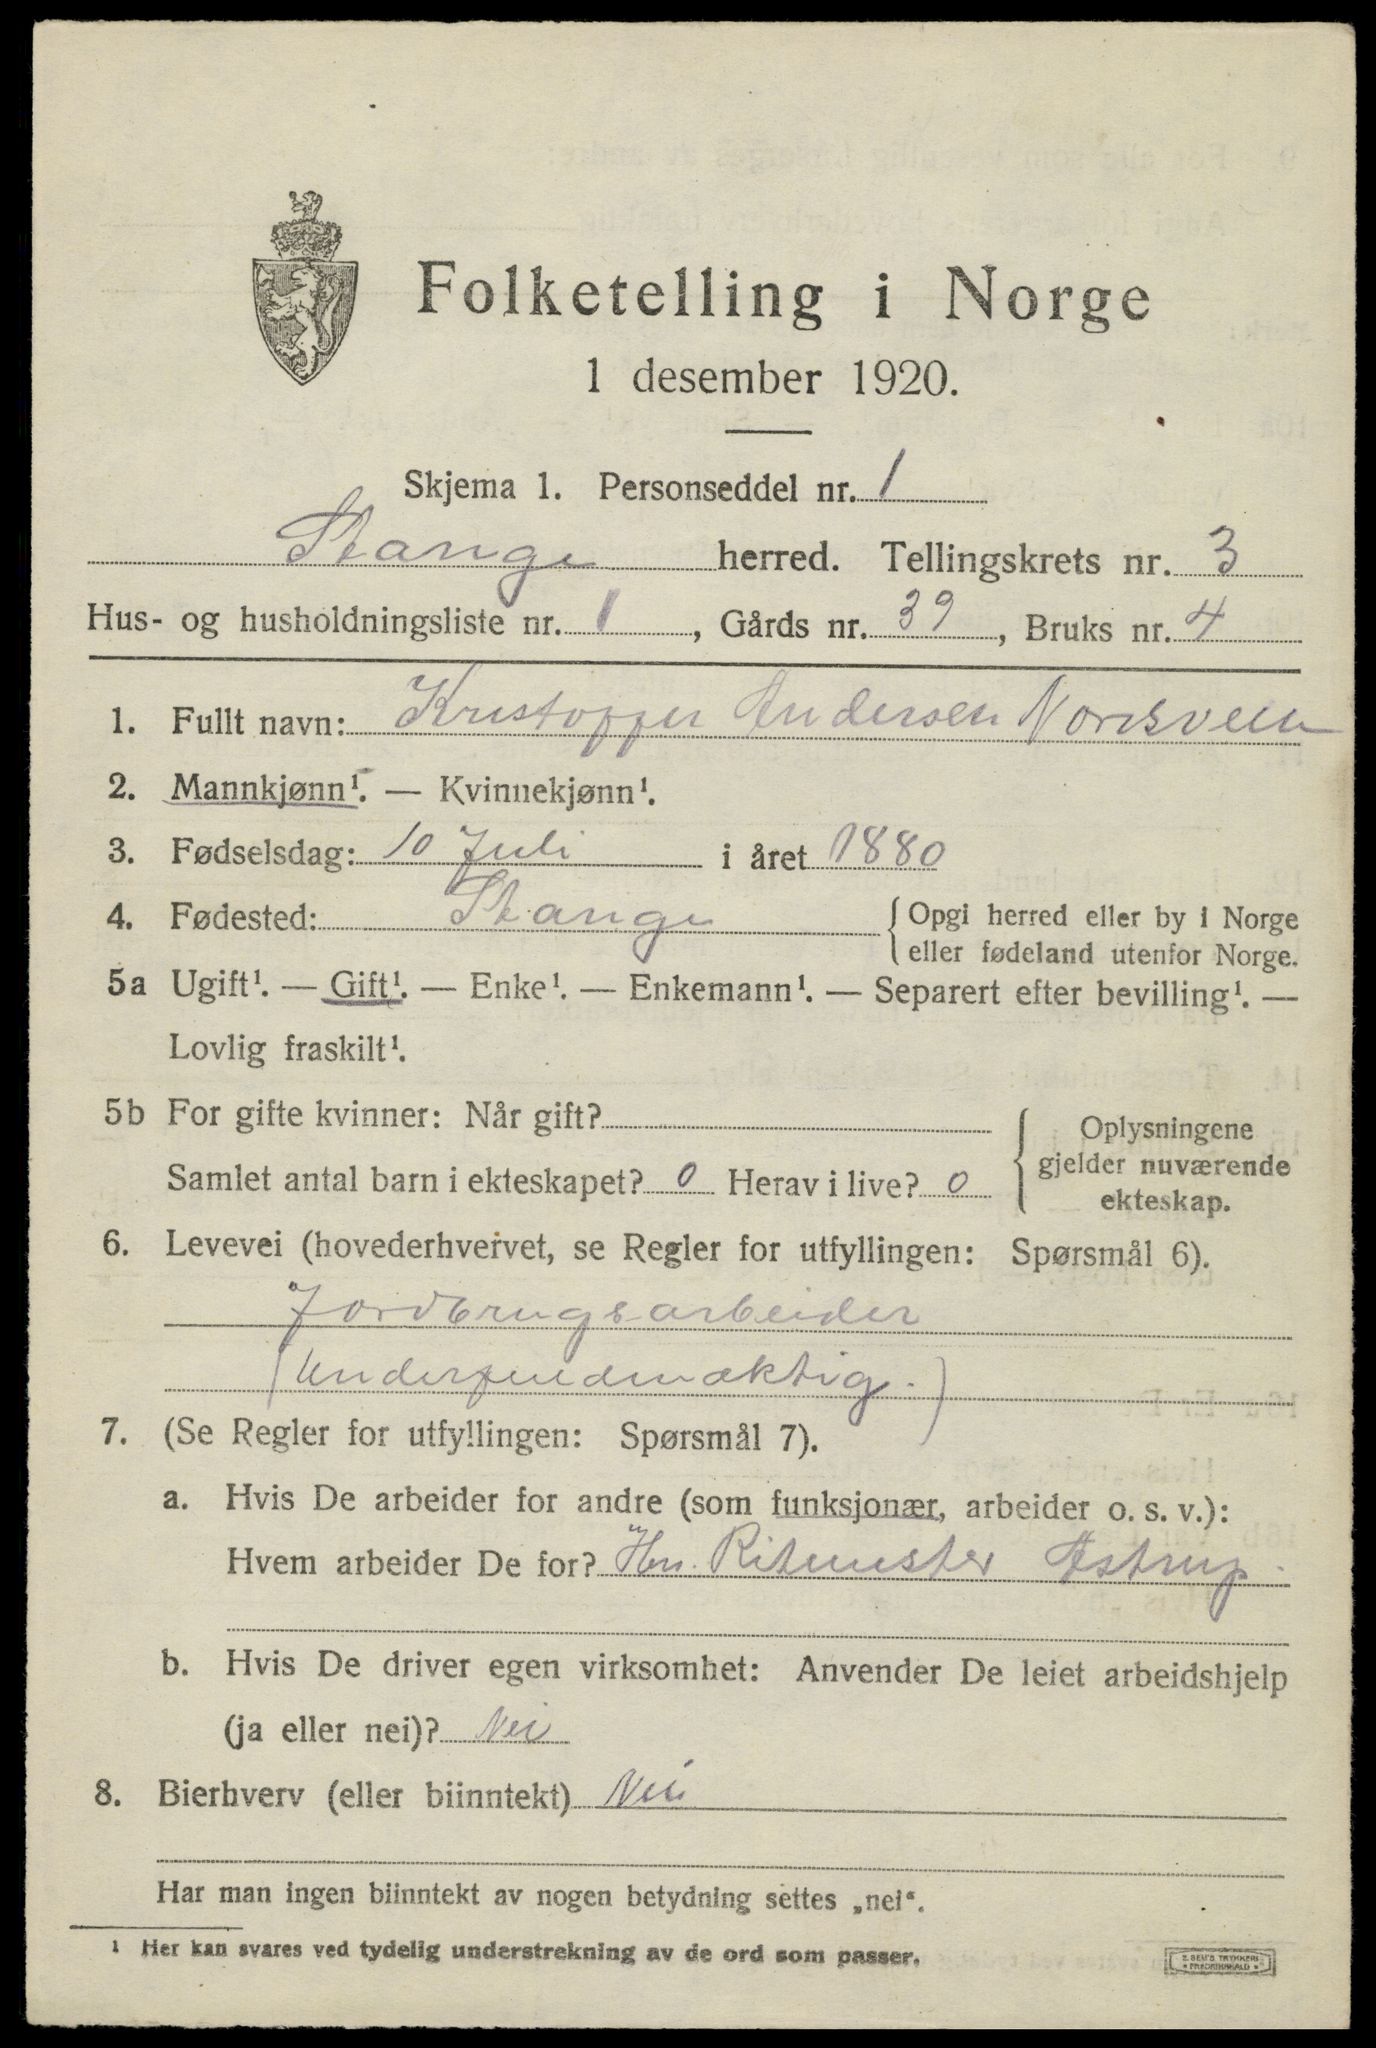 Folketelling i Norge
1 desember 1920.
Skjema 1. Personseddel nr. 1
Stange herred. Tellingskrets nr. 3
Hus- og husholdningsliste nr. 1, Gårds nr. 39, Bruks nr. 4
1. Fullt navn: Kristoffer Andersen Nordsveen
2. Mannkjønn¹. — Kvinnekjønn¹.
3. Fødselsdag: 10 Juli i året 1880
4. Fødested: Stange {Opgi herred eller by i Norge
eller fødeland utenfor Norge.
5a Ugift¹. — Gift¹. — Enke¹. — Enkemann¹. — Separert efter bevilling¹. —
Lovlig fraskilt¹.
5b For gifte kvinner: Når gift?
Samlet antal barn i ekteskapet? 0 Herav i live? 0
{Oplysningene
gjelder nuværende
ekteskap.
6. Levevei (hovederhvervet, se Regler for utfyllingen: Spørsmål 6).
Jordbrugsarbeider
7. (Se Regler for utfyllingen: Spørsmål 7).
a. Hvis De arbeider for andre (som funksjonær, arbeider o. s. v.):
Hvem arbeider De for? Hr. Ritmester Astrup.
b. Hvis De driver egen virksomhet: Anvender De leiet arbeidshjelp
(ja eller nei)? Nei
8. Bierhverv (eller biinntekt) Nei
Har man ingen biinntekt av nogen betydning settes „nei“.
¹ Her kan svares ved tydelig understrekning av de ord som passer.
E. SEM'S TRYKKERI
FREDRIKSHALD